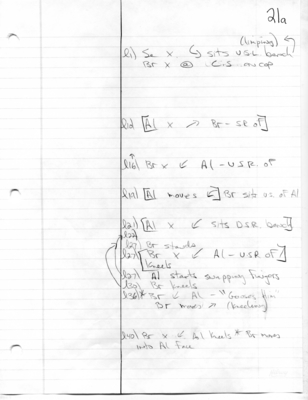 21a
(limping)
l1) Se x ↳ sits U.S.L bench
Br x @ C.S on cap
l2) [Al x ↗ Br - SR of]
l16) Br x ↙ Al - U.S.R. of
l19) [Al moves ↙] Br sits of Al
l21) [Al x ↙ sits D.S.R bench]
l22)
l27) Br stands
l27) [Br x ↙ Al - U.S.R of]
kneels
l27) Al starts snapping fingers
l30) Br kneels
l36) * Br ↙ Al - "Gives him
Br moves ↗
l40) Br x ↙ Al kneels * Br moves
into Al face